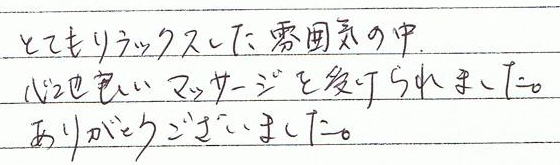 とてもリラックスした雰囲気の中
心地良い マッサージを受けられました。
ありがとうございました。